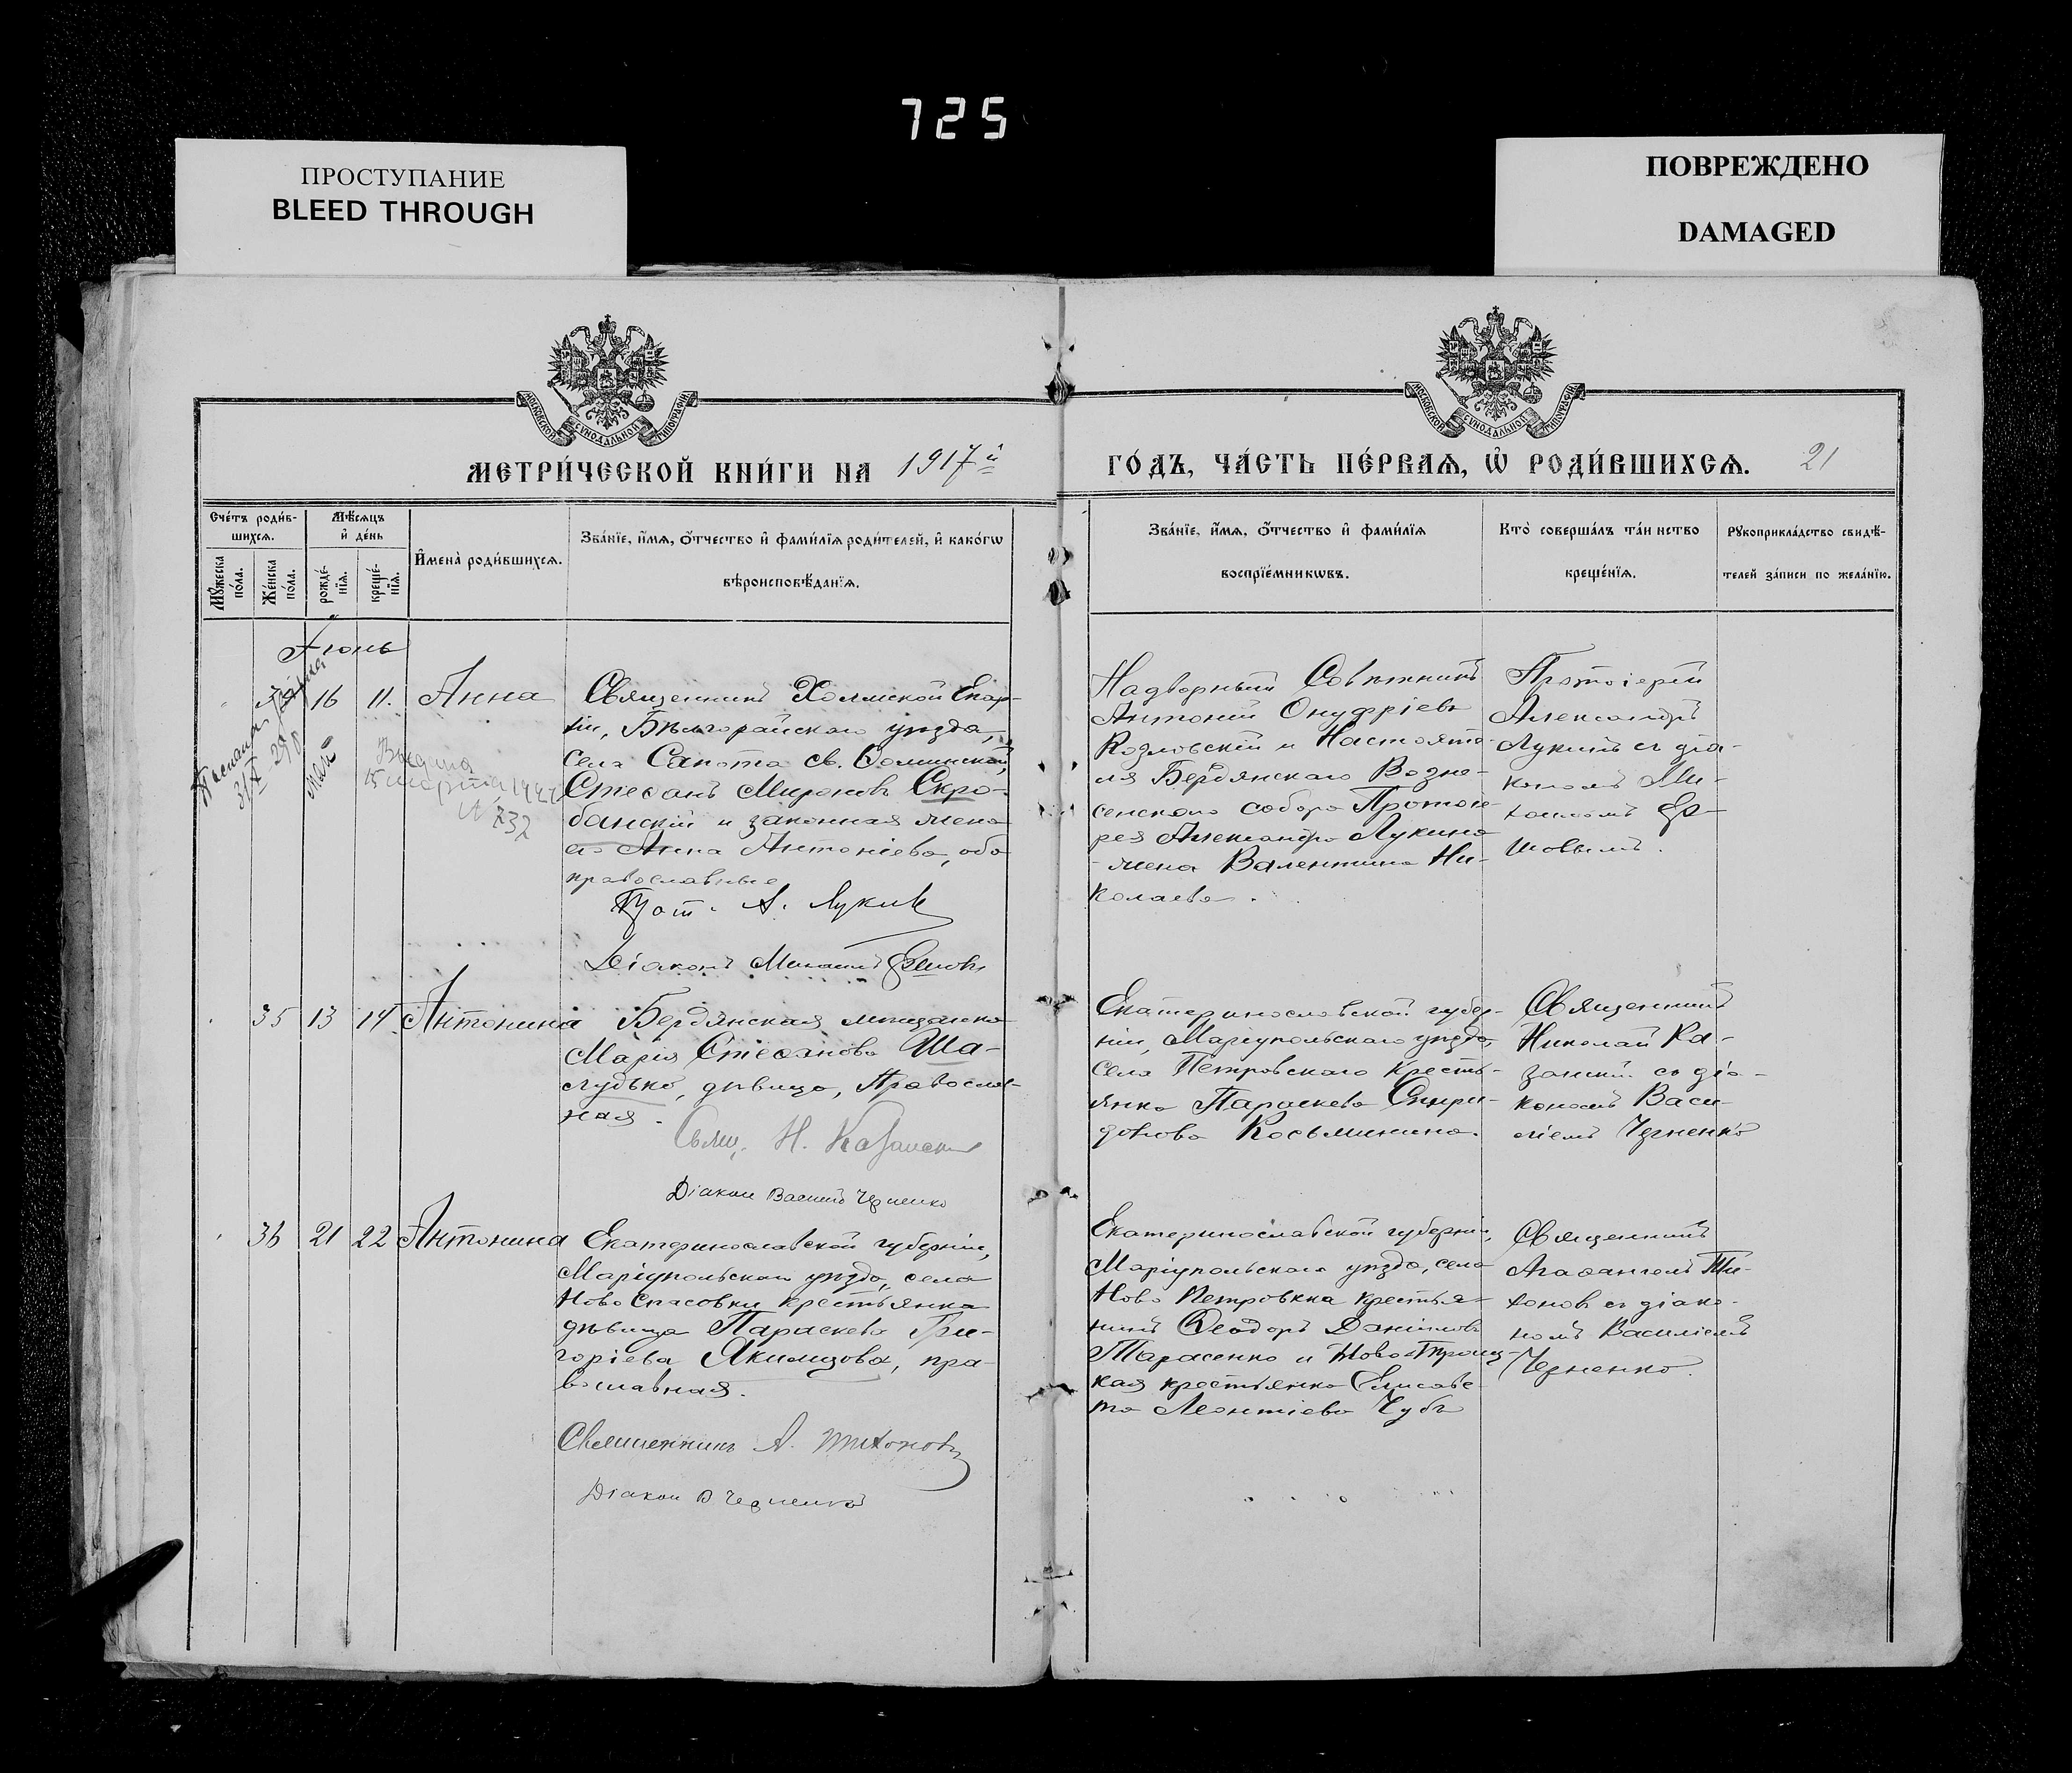 725
ПРОСТУПАНИЕ
BLEED THROUGH
ПОВРЕЖДЕНО
DAMAGED
МОСКОВСКОЙ СѴНОДАЛЬНОЙ ТИПОГРАФІИ
МОСКОВСКОЙ СѴНОДАЛЬНОЙ ТИПОГРАФІИ
МЕТРИ́ЧЕСКОЙ КНИ́ГИ НА 1917й
ГО́ДЪ, ЧА́СТЬ ПЕ́РВАѦ, Ѡ҆ РОДИ́ВШИХСѦ. 21
Сче́тъ роди́в-
шихсѧ.
Мꙋ́жеска
по́ла.
Же́нска
по́ла.
Мѣ́сѧцъ
и҆ де́нь
рожде́-
нїѧ.
креще́-
нїѧ.
И҆мена̀ роди́вшихсѧ.
Зва́нїе, и҆́мѧ, ѻ҆́тчество и҆ фами́лїѧ роди́телей, и҆ како́гѡ
вѣроисповѣ́данїѧ.
Зва́нїе, и҆́мѧ, ѻ҆́тчество и҆ фами́лїѧ
воспрїе́мникѡвъ.
Кто̀ соверша́лъ та́инство
креще́нїѧ.
Рꙋкоприкла́дство свидѣ́-
телей за́писи по жела́нїю.
Іюнь
16 11. Анна
Мая
Выдана
15 марта
N 232
Священникъ Холмской Епар-
хіи, Бѣлгорайскаго уѣзда,
села Сапота св.
Стефанъ Мироновъ Скро-
банскій и законная жена
его Анна Антоніева, оба
православные
Прот. А. Лукинъ
Діаконъ Михаилъ
Надворный Совѣтникъ
Антоній Онуфріевъ
Козловскій и Настояте-
ля Бердянскаго Возне-
сенскаго собора Протоіе-
рея Александра Лукина
жена Валентина Ни-
колаева.
Протоіерей
Александръ
Лукинъ съ діа-
кономъ Ми-
хаиломъ
35 13 14 Антонина
Бердянская мѣщанка
Марія Стефанова Ша-
лудько, дѣвица, Православ-
ная.
Свящ. Н. Казанскій
Діаконъ Василій Черненко
Екатеринославской губер-
ніи, Маріупольскаго уѣзда,
села Петровскаго кресть-
янка Параскева Спири-
донова Косьминина.
Священникъ
Николай Ка-
занскій съ діа-
кономъ Васи-
ліемъ Черненко
36 21 22 Антонина
Екатеринославской губерніи,
Маріупольскаго уѣзда, села
Ново Спасовки крестьянка
дѣвица Параскева Гри-
горіева Якимцова, пра-
вославная.
Священникъ А. Тихоновъ
Діаконъ В Черненко
Екатеринославской губерніи,
Маріупольскаго уѣзда, села
Ново Петровки крестья-
нинъ Ѳеодоръ Даніиловъ
Тарасенко и Ново-Троиц-
кая крестьянка Елисаве-
та Леонтіева Чубъ
Священникъ
Агафангелъ Ти-
хоновъ съ діако-
номъ Василіемъ
Черненко.